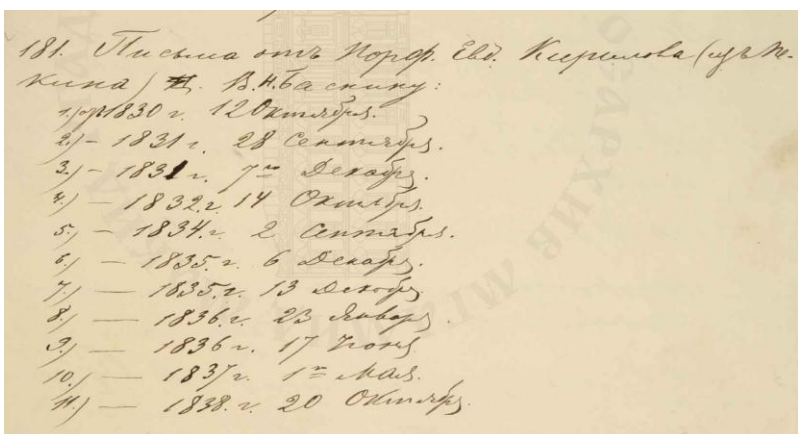 181. Письма отъ Порф. Евд. Кирилова (изъ Пе-
кина) В.Н. Баснину:
1.) отъ 1830 г. 12 Октября.
2.) — 1831 г. 28 Сентября.
3.) — 1831 г. 7го Декабря.
4.) — 1832 г. 14 Октября.
5.) — 1834 г. 2 Сентября.
6.) — 1835 г. 6 Декабря.
7.) — 1835 г. 13 Декабря.
8.) — 1836 г. 23 Января.
9.) — 1836 г. 17 Июня
10.) — 1837 г. 1го Мая.
11.) — 1838 г. 20 Октября.